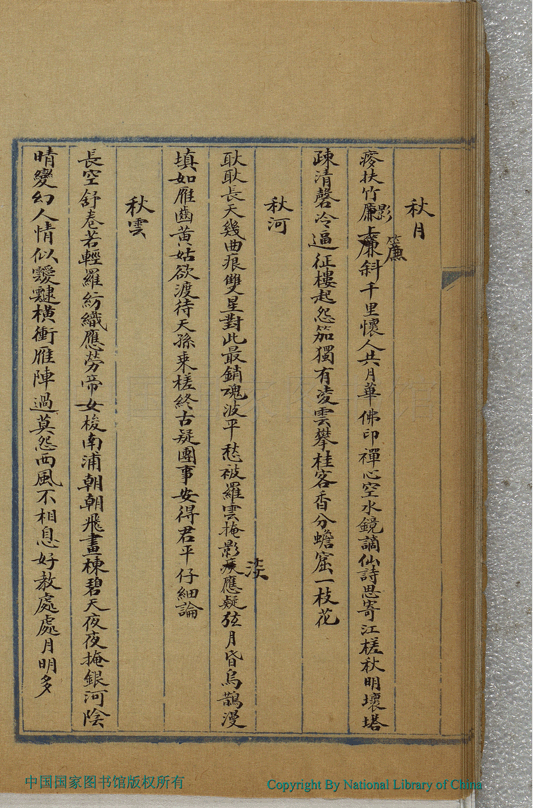 秋月
疼扶竹影上簾斜千里懷人共月華佛印禪心空水鏡謫仙詩思寄江槎秋明壞塔
簾
疎清磬冷逼征樓起怨笳獨有凌雲攀桂客香分蟾窟一枝花
秋河
耿耿長天幾曲痕雙星對此最銷魂波平愁破羅雲掩影疾應疑弦月昏烏鵲漫
淡
填如雁齒黃姑欲渡待天孫乘槎終古疑團事安得君平仔細論
秋雲
長空舒卷若輕羅紡織應勞帝女梭南浦朝朝飛畫棟碧天夜夜掩銀河陰
晴變幻人情似靉靆橫衝雁陣過莫怨西風不相息好教處處月明多
中国国家图书馆版权所有
Copyright By National Library of China